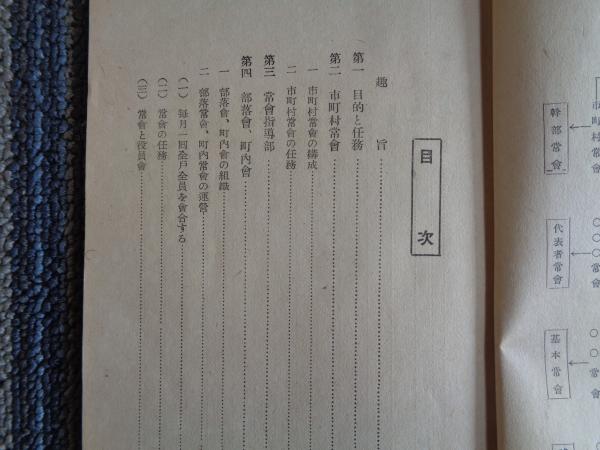 目次
趣旨
第一 目的と任務
第二 市町村常會
一 市町村常會の構成
二 市町村常會の任務
第三 常會指導部
第四 部落會、町內會
一 部落會、町內會の組織
二 部落常會、町內常會の運營
(一) 每月一囘全戶全員を會合する
(二) 常會の任務
(三) 常會と役員會
市町村常會
幹部常會
○○○常會
代表者常會
○○常會
基本常會